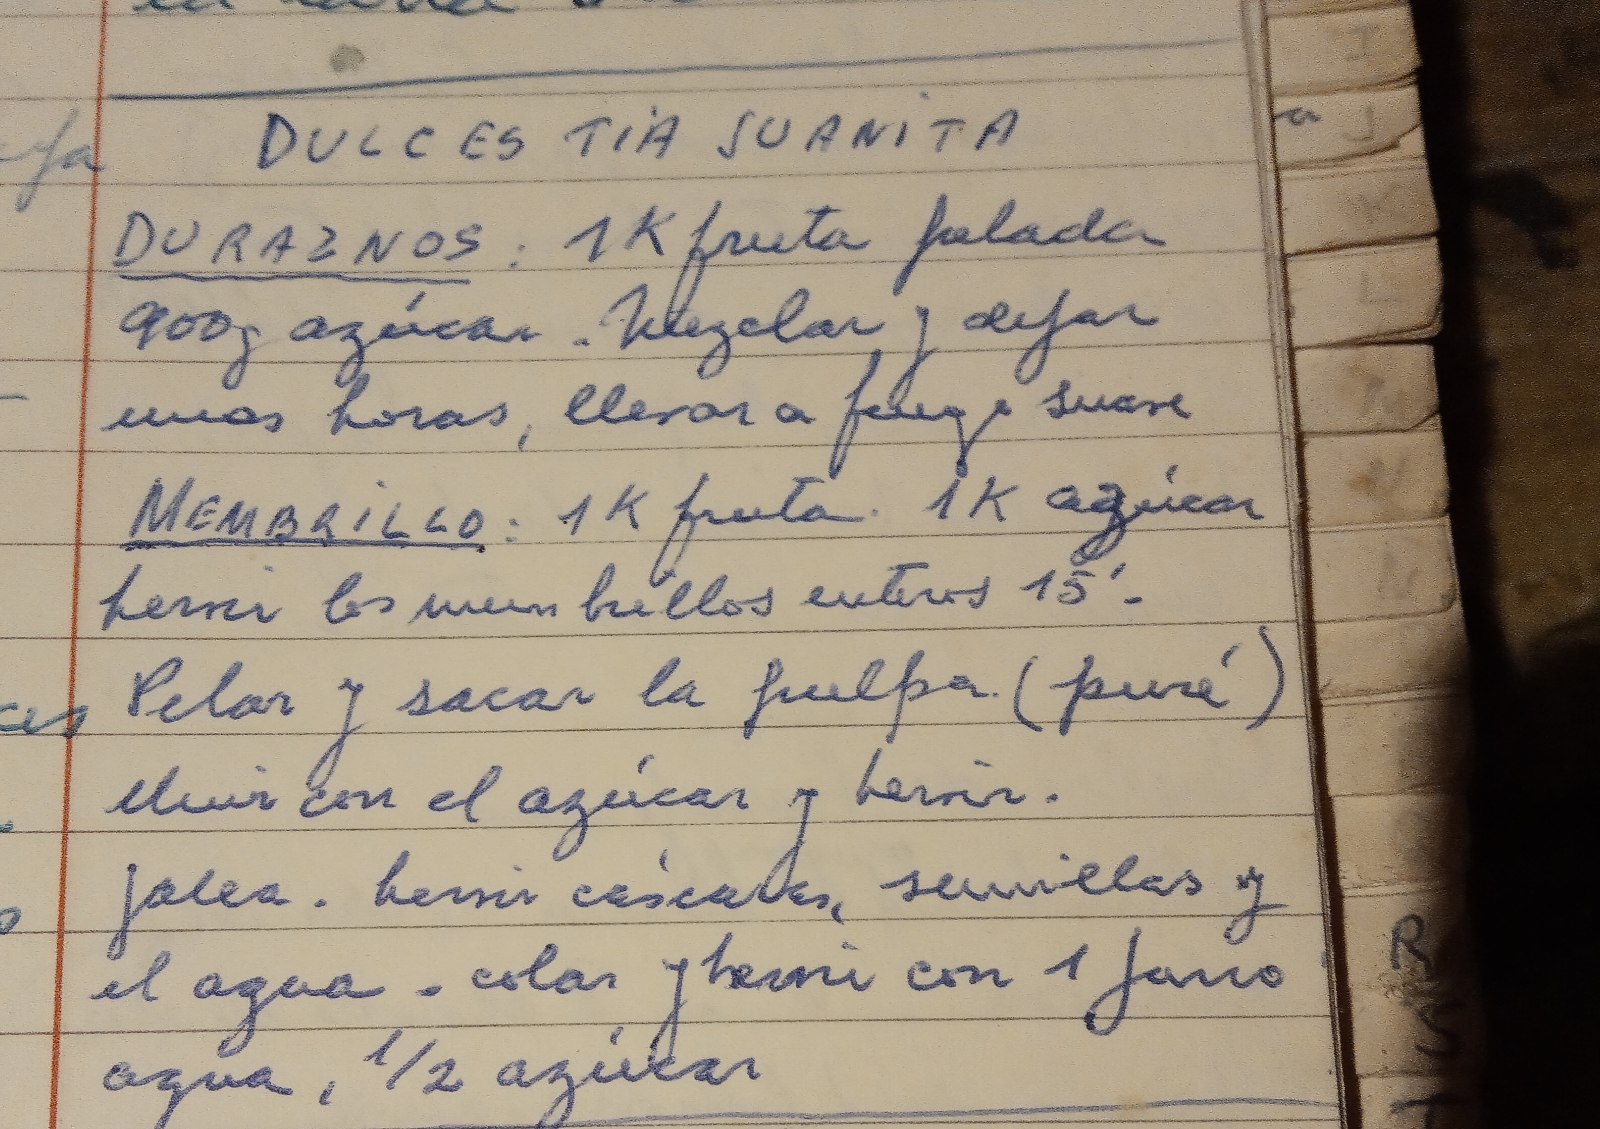 DULCES TIA JUANITA
DURAZNOS: 1K fruta pelada
900g azúcar. Mezclar y dejar
unas horas, llevar a fuego suave
MEMBRILLO: 1K fruta. 1K azúcar
hervir los membrillos enteros 15'.
Pelar y sacar la pulpa (puré)
Unir con el azúcar y hervir.
Jalea. hervir cáscaras, semillas y
el agua. colar y hervir con 1 jarro
agua, 1/2 azúcar
R